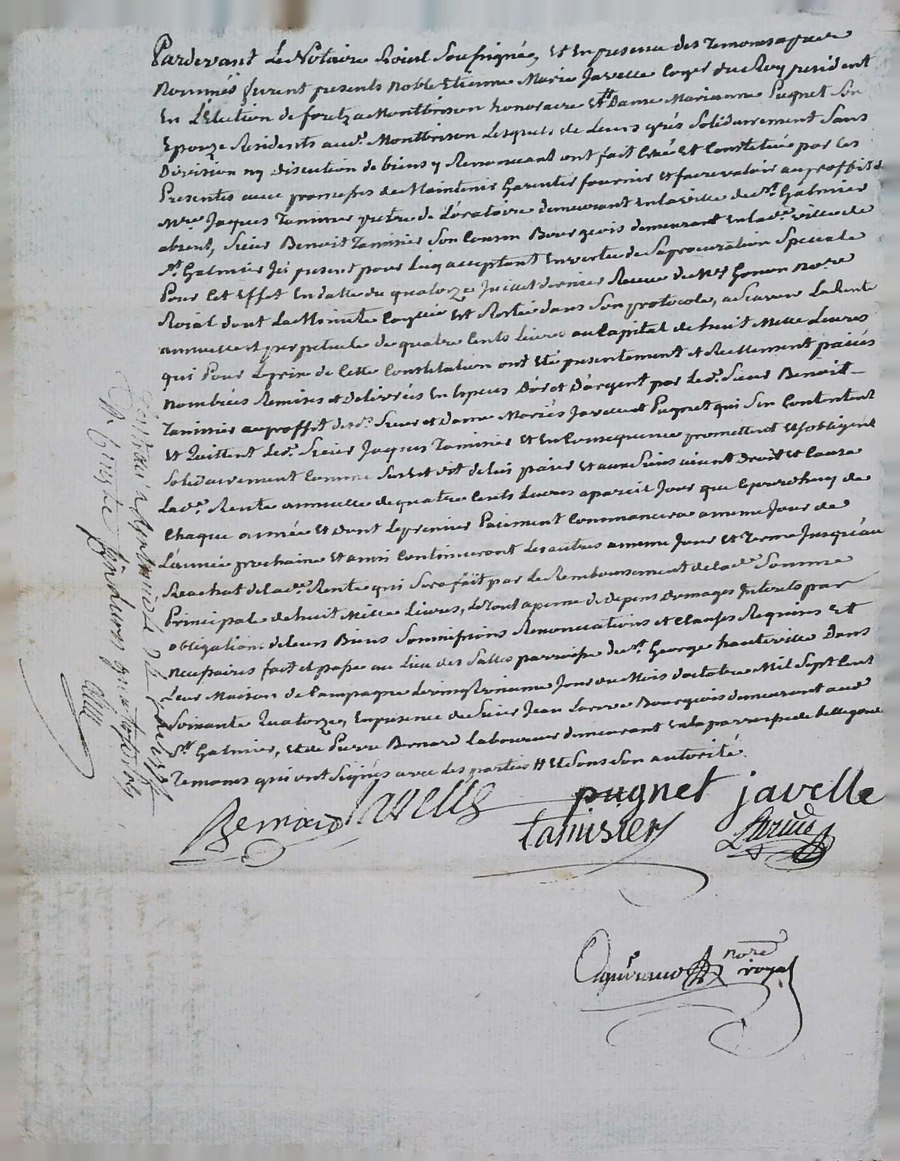 Pardevant Le Notaire Roial Soussigné, Et En presence des temoins apres
nommés furent presents noble Etienne Marie Javelle Coner du Roy president
En L'Election de foretz a Montbrison honoraire Et Dame Marianne Pugnet Son
Epouze Residents aud. Montbrison Lesquels de Leurs grés Solidairement Sans
Division ny discution de biens y Renonceant ont fait Créé Et Constitué par les
Presentes avec promesses de Maintenir Garentir fournir et faire valoir au proffit de
Mre. Jaques Tamisier prêtre de L'oratoire demeurant En la ville de St. Galmier
absent, Sieur Benoit Tamisier Son Cousin Bourgeois demeurant En lad. ville de
St. Galmier Ici present pour Luy acceptant En vertu de Sa procuration Speciale
Pour Cet Effet En datte du quatorze Juillet dernier Receue de Me Gonon nore
Roial dont La Minute Est Restée dans Son protocole, a Scavoir La Rente
annuelle et perpetuelle de quatre Cents Livres au Capital de huit Mille Livres
qui Pour Le prix de Cette Constitution ont Eté presentement et Reellement païées
Nombrées Remises et delivrées En Especes D'or et D'argent par led. Sieur Benoit
Tamisier au proffit desd. Sieur et Dame Mariés Javelle et Pugnet qui S'en Contentent
Et Quittent led. Sieur Jaques Tamisier et En Consequence promettent et s'obligent
Solidairement Comme Sus est dit de lui païer et aux Siens aiant Droit et Cause
Lad. Rente annuelle de quatre Cents Livres a pareil Jour que Cejourdhuy de
Chaque année Et dont Le premier Paiment Commencera a meme Jour de
L'année prochaine Et ainsi Continueront Les autres a meme Jour et Terme Jusqu'au
Reachat de lad. Rente qui Sera fait par le Remboursement de lad. Somme
Principale de huit Mille Livres, Le tout a peine de depens domages Interets par
obligation de leurs Biens Soumissions Renonciations et Clauses Requises Et
necessaires fait et passé au Lieu des Salles parroisse de St. George hauteville Dans
Leur Maison de Campagne Le vingt Jour du Mois d'octobre Mil Sept Cent
Soixante Quatorze, En presence de Sieur Jean Bourgeois demeurant aud
St. Galmier, Et de Pierre Bernard Laboureur demeurant En la parroisse de bellegarde
Temoins qui ont Signés avec les parties # Et Sous Son autorité.
Bernard Javelle pugnet javelle
tamisier
nore
royal